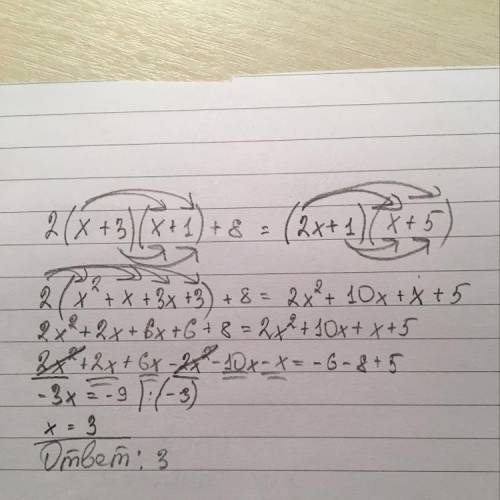 2(x+3)(x+1)+8 = (2x+1)(x+5)
2(x²+x+3x+3)+8 = 2x²+10x+x+5
2x²+2x+6x+6+8=2x²+10x+x+5
2x²+2x+6x-2x²-10x-x=-6-8+5
-3x=-9 |:(-3)
x=3
Ответ: 3